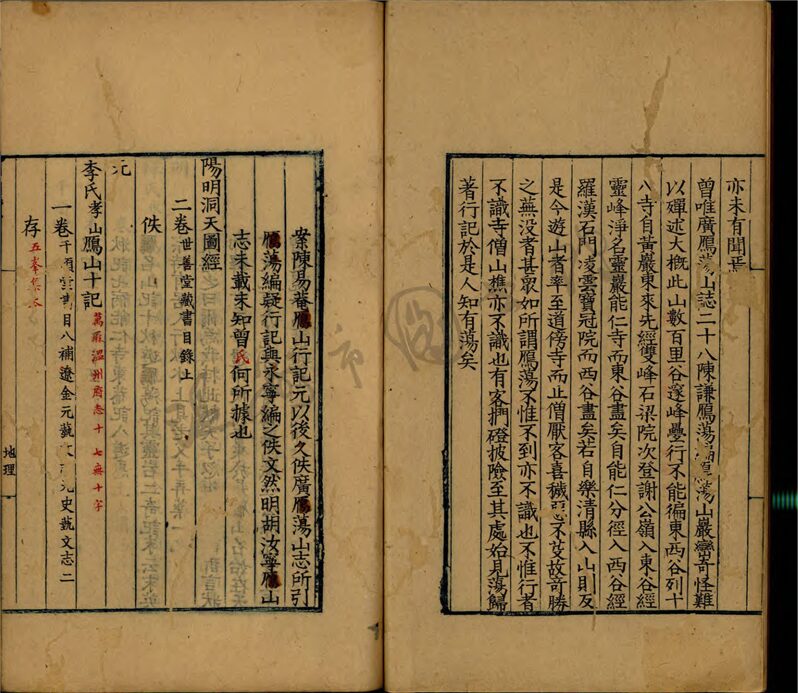 亦未有聞焉
曾唯廣鴈蕩山誌二十八陳謙鴈蕩蕩山巖巒奇怪難
以殫述大槪此山數百里谷邃峰疊行不能徧東西谷列十
八寺自黃巖東來先經雙峰石梁院次登謝公嶺入東谷經
靈峰淨名靈巖能仁寺而東谷盡矣自能仁分徑入西谷經
羅漢石門凌雲寶冠院而西谷盡矣若自樂清縣入山則反
是今遊山者率至道傍寺而止僧厭客喜穢惡不芟故奇勝
之蕪没者甚眾如所謂鴈蕩不惟不到亦不識也不惟行者
不識寺僧山樵亦不識也有客捫磴披險至其處始見蕩歸
著行記於是人知有蕩矣
案陳易菴鴈山行記元以後久佚廣鴈蕩山志所引
鴈蕩編疑行記與永寧編之佚文然明胡汝寧鴈山
志未載未知曾氏何所據也
陽明洞天圖經
二卷世善堂藏書目錄上
佚
元
李氏孝山鴈山十記萬厤溫州府志十七無十字
一卷千頃堂書目八補遼金元藝文志元史藝文志二
存五峯集本
地理